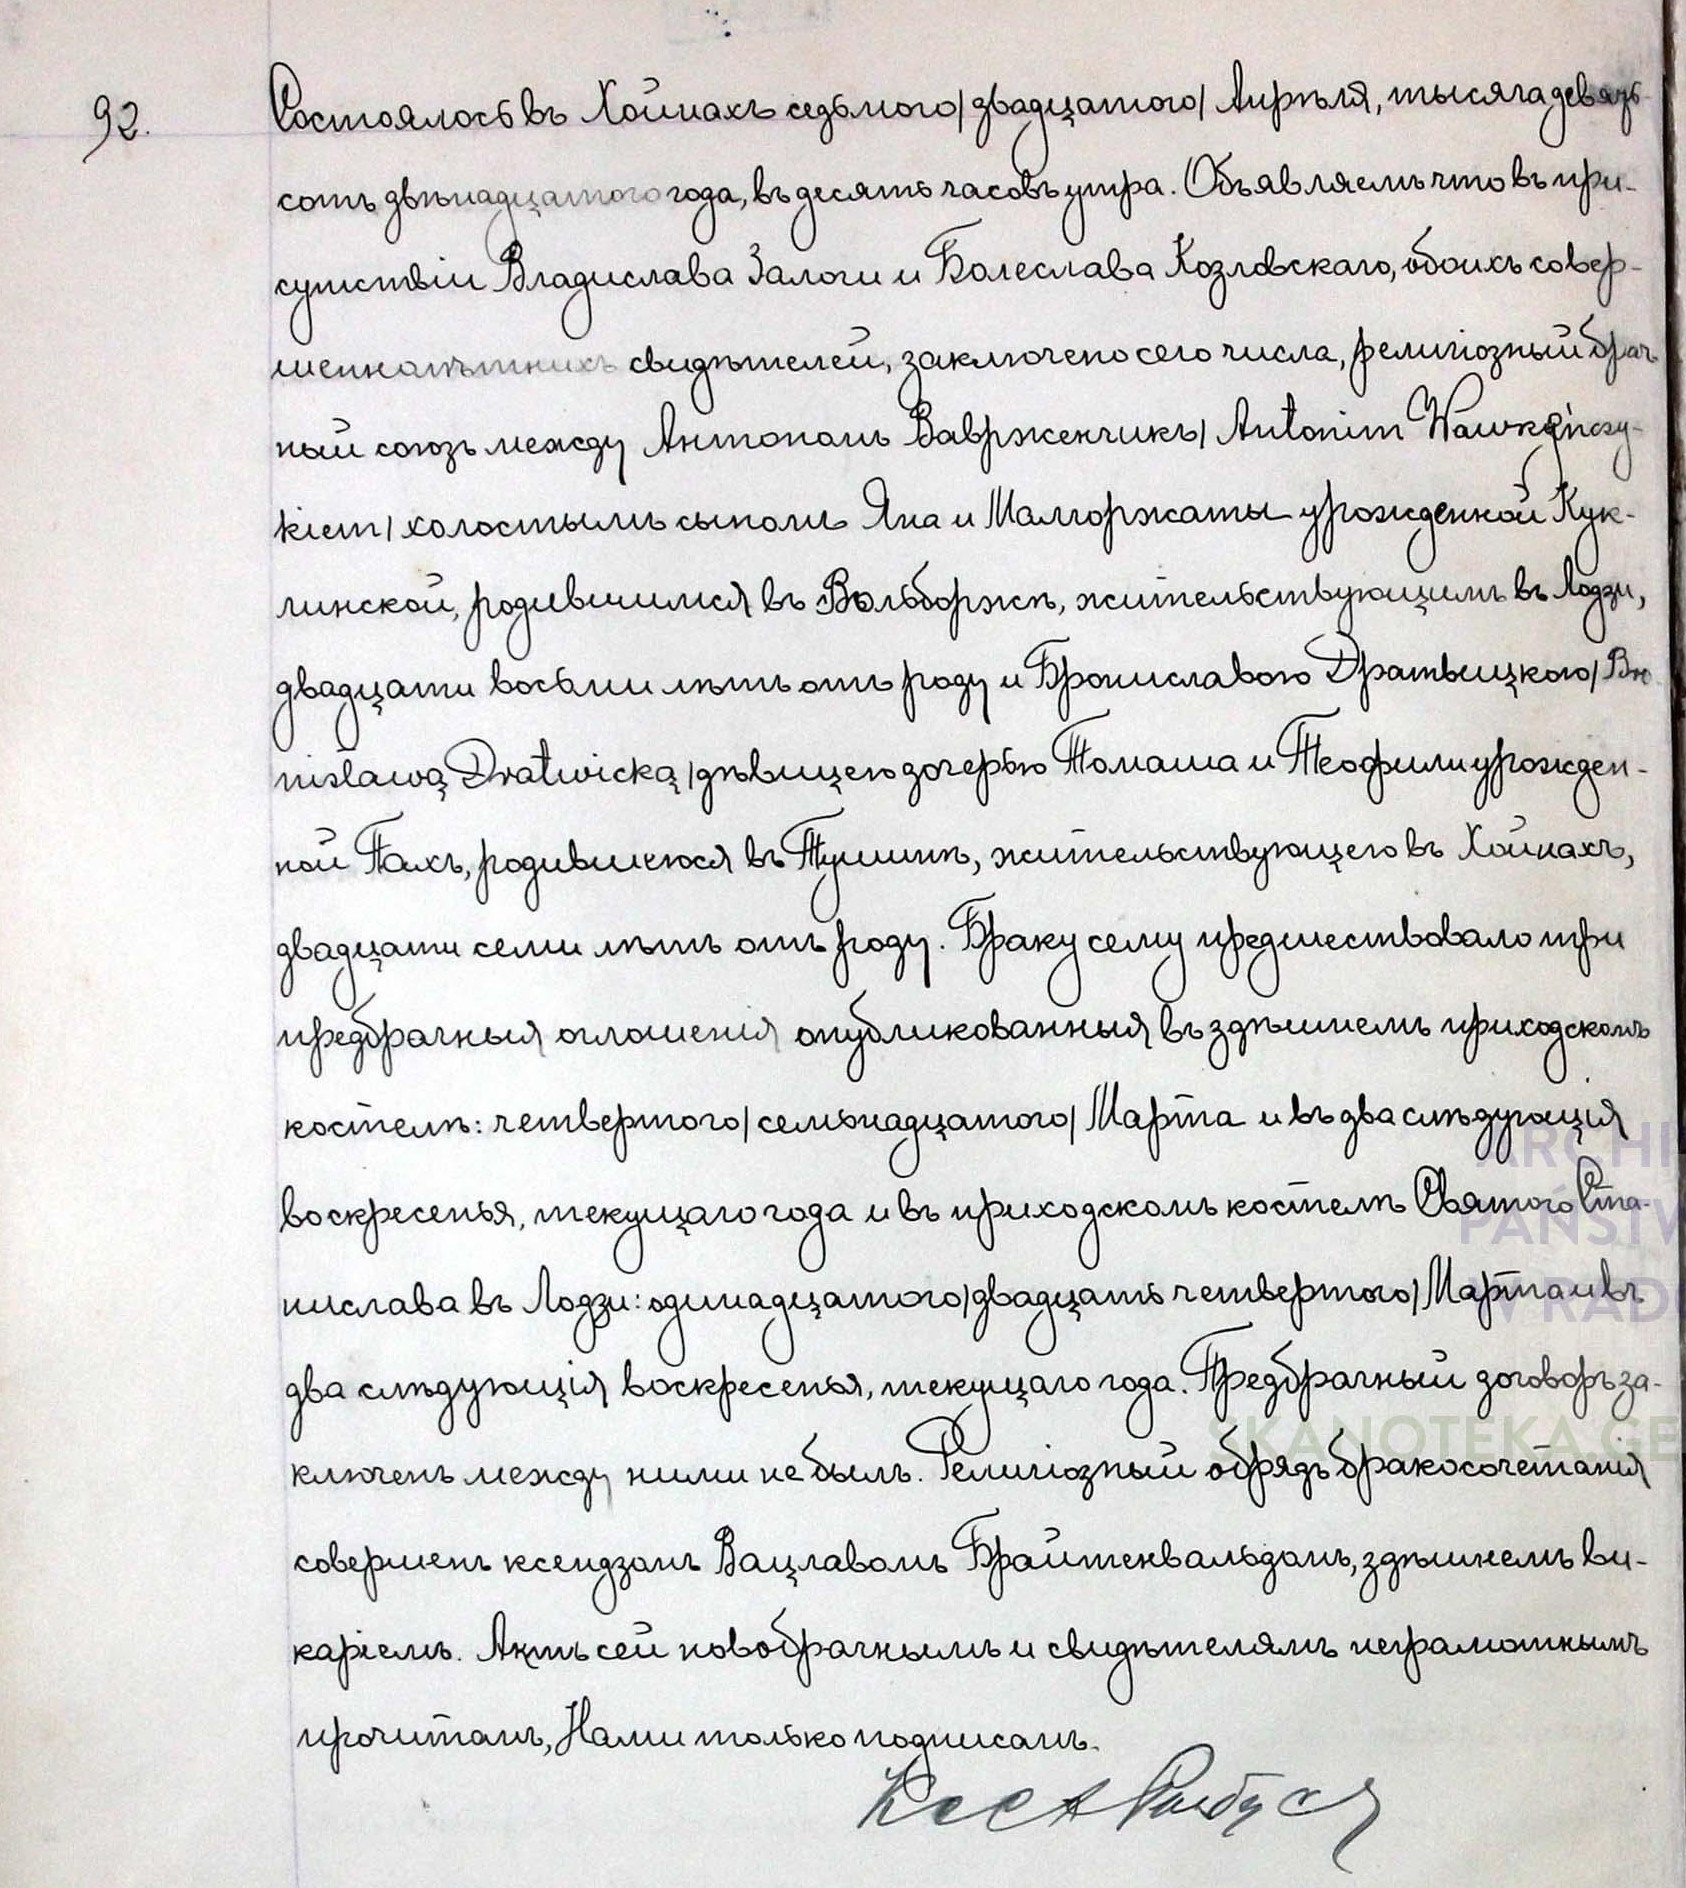 92.
Состоялось въ Хойнахъ седьмого/двадцатого/ Апрѣля, тысяча девять-
сотъ двѣнадцатого года, въ десять часовъ утра. Объявляемъ что въ при-
сутствіи Владислава Залоги и Болеслава Козловскаго, обоихъ совер-
шеннолѣтнихъ свидѣтелей, заключено сего числа, религіозный брач-
ный союзъ между Антономъ Ваврженчикъ/ Antonim Wawrzeńczy-
kiem/ холостымъ сыномъ Яна и Малгоржаты урожденной Кук-
линской, родившимся въ Вольборжѣ, жительствующимъ въ Лодзи,
двадцати восьми лѣтъ отъ роду и Брониславою Дратвицкою/ Bro-
nisławą Dratwicką/ дѣвицею дочерью Томаша и Теофили урожден-
ной Пахъ, родившеюся въ Тушинѣ, жительствующею въ Хойнахъ,
двадцати семи лѣтъ отъ роду. Браку сему предшествовало три
предбрачныя оглошенія опубликованныя въ здѣшнемъ приходскомъ
костелѣ: четвертого/семьнадцатого/ Марта и въ два слѣдующія
воскресенья, текущаго года и въ приходскомъ костелѣ Святого Ста-
нислава въ Лодзи: одинадцатого/двадцать четвертого/ Марта и въ
два слѣдующія воскресенья, текущаго года. Предбрачный договоръ за-
ключенъ между ними не былъ. Религіозный обрядъ бракосочетанія
совершенъ ксендзомъ Вацлавомъ Брайтенвальдомъ, здѣшнемъ ви-
каріемъ. Актъ сей новобрачнымъ и свидѣтелямъ неграмотнымъ
прочитанъ, Нами только подписанъ.
ARCHI
PAŃSTW
W RAD
SKANOTEKA.GE